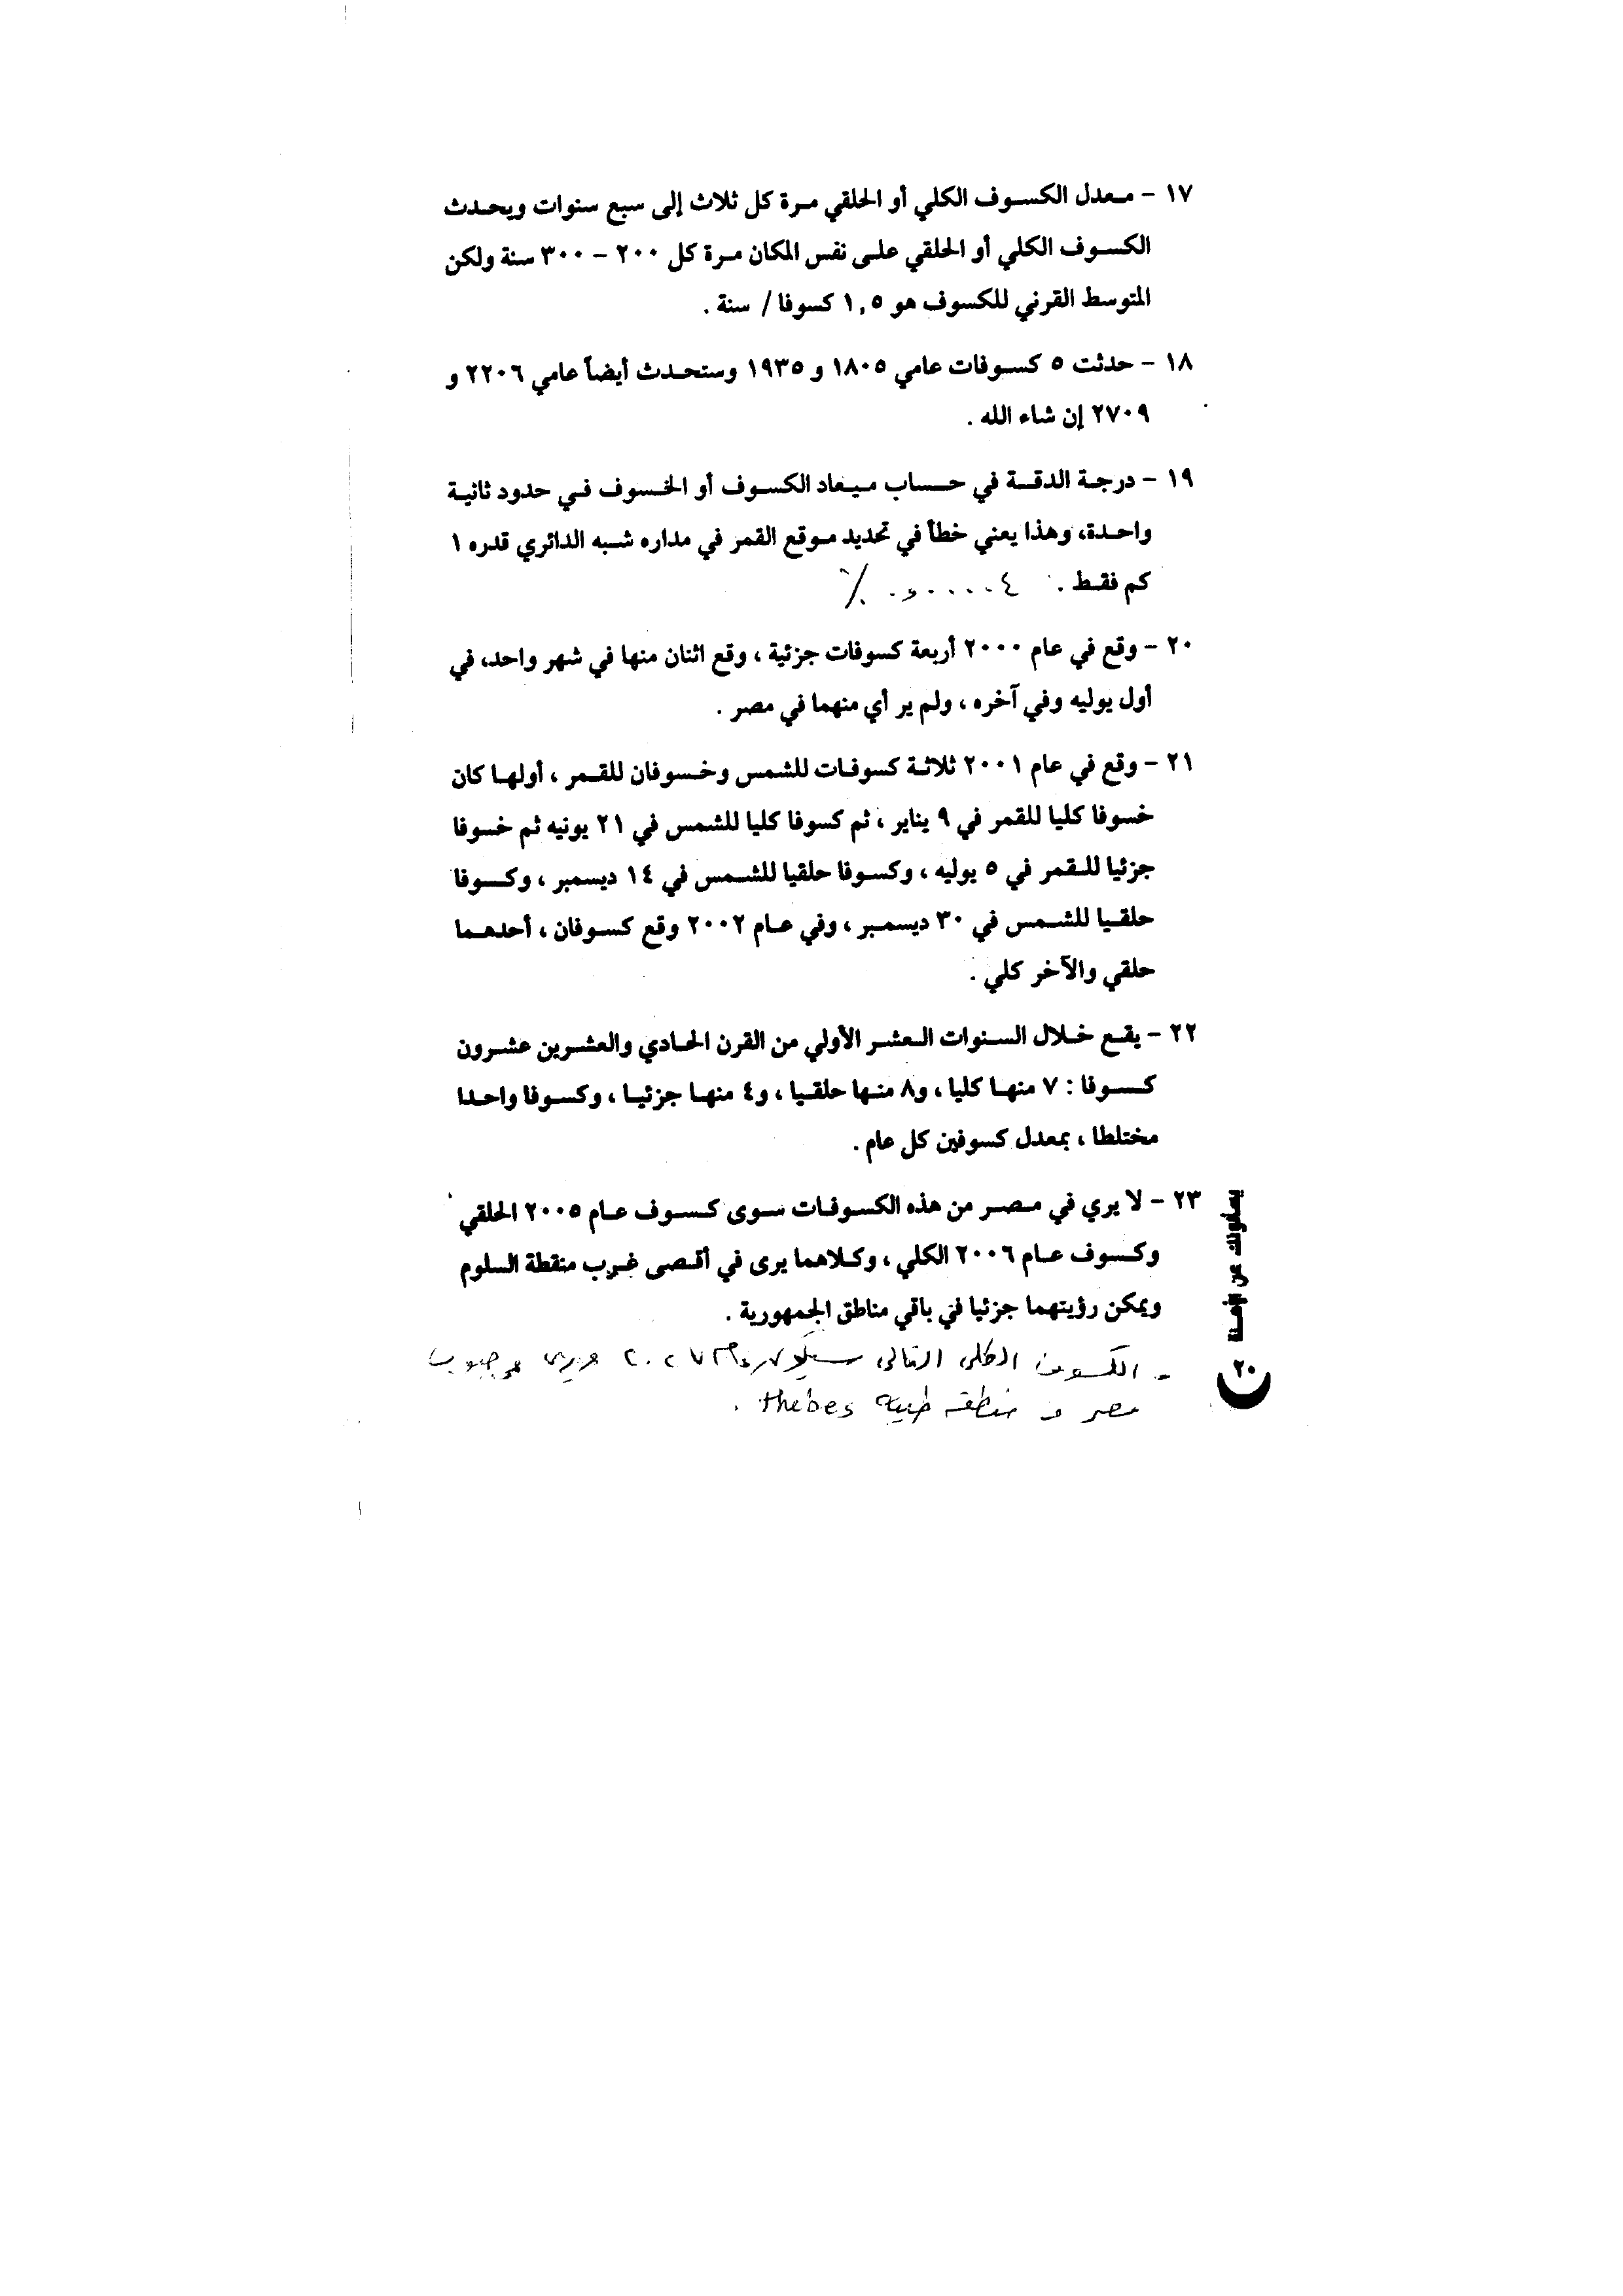 ١٧ - معدل الكسوف الكلي أو الحلقي مرة كل ثلاث إلى سبع سنوات ويحدث
الكسوف الكلي أو الحلقي على نفس المكان مرة كل ٢٠٠ - ٣٠٠ سنة ولكن
المتوسط القرني للكسوف هو ١,٥ كسوفا / سنة .
١٨ - حدثت ٥ كسوفات عامي ١٨٠٥ و ١٩٣٥ وستحدث أيضاً عامي ٢٢٠٦ و
٢٧٠٩ إن شاء الله .
١٩ - درجة الدقة في حساب ميعاد الكسوف أو الخسوف في حدود ثانية
واحدة، وهذا يعني خطأ في تحديد موقع القمر في مداره شبه الدائري قدره ١
كم فقط .
٢٠ - وقع في عام ٢٠٠٠ أربعة كسوفات جزئية ، وقع اثنان منها في شهر واحد، في
أول يوليه وفي آخره ، ولم ير أي منهما في مصر .
٢١ - وقع في عام ٢٠٠١ ثلاثة كسوفات للشمس وخسوفان للقمر ، أولها كان
خسوفا كليا للقمر في ٩ يناير ، ثم كسوفا كليا للشمس في ٢١ يونيه ثم خسوفا
جزئيا للقمر في ٥ يوليه ، وكسوفا حلقيا للشمس في ١٤ ديسمبر ، وكسوفا
حلقيا للشمس في ٣٠ ديسمبر ، وفي عام ٢٠٠٢ وقع كسوفان ، أحدهما
حلقي والآخر كلي .
٢٢ - يقع خلال السنوات العشر الأولي من القرن الحادي والعشرين عشرون
كسوفا : ٧ منها كليا ، و٨ منها حلقيا ، و٤ منها جزئيا ، وكسوفا واحدا
مختلطا ، بمعدل كسوفين كل عام .
٢٣ - لا يري في مصر من هذه الكسوفات سوى كسوف عام ٢٠٠٥ الحلقي
وكسوف عام ٢٠٠٦ الكلي ، وكلاهما يرى في أقصى غرب منقطة السلوم
ويمكن رؤيتهما جزئيا في باقي مناطق الجمهورية .
- الكسوف الكلى التالى ٢٠٢٧ جنوب
مصر منطقة طيبه thebes .
يسألونك عن الأهلة
٢٠